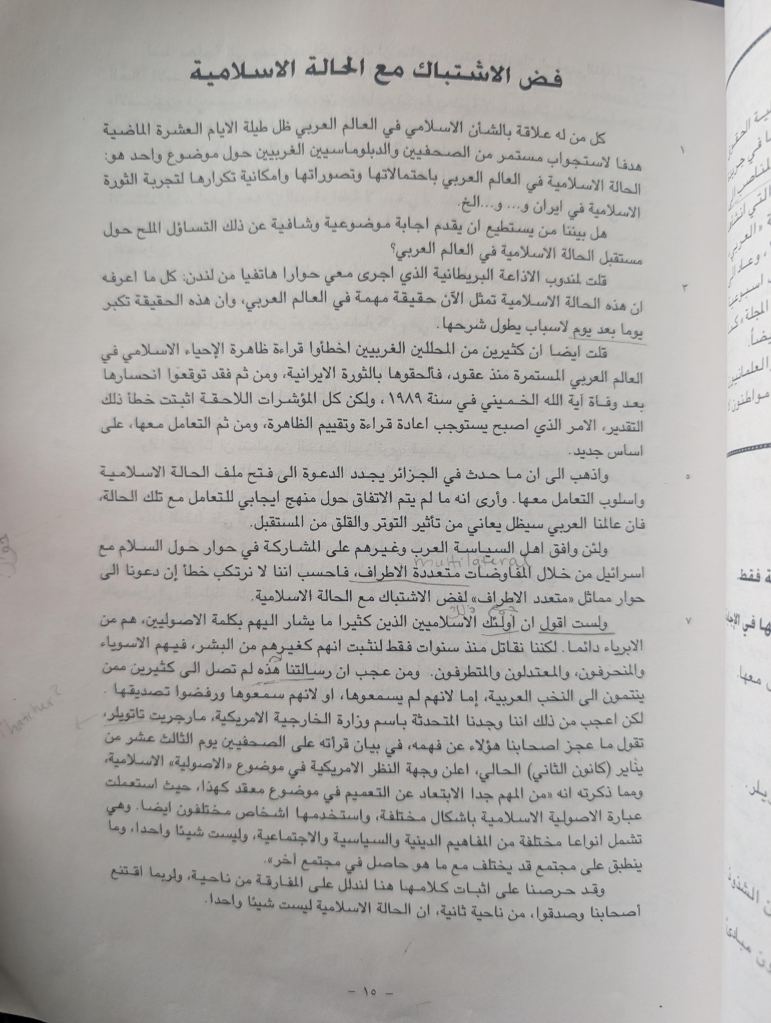 فض الاشتباك مع الحالة الاسلامية
١ كل من له علاقة بالشأن الاسلامي في العالم العربي ظل طيلة الايام العشرة الماضية
هدفا لاستجواب مستمر من الصحفيين والدبلوماسيين الغربيين حول موضوع واحد هو:
الحالة الاسلامية في العالم العربي باحتمالاتها وتصوراتها وامكانية تكرارها لتجربة الثورة
الاسلامية في ايران و... و...الخ.
هل بيننا من يستطيع ان يقدم اجابة موضوعية وشافية عن ذلك التساؤل الملح حول
مستقبل الحالة الاسلامية في العالم العربي؟
٣ قلت لمندوب الاذاعة البريطانية الذي اجرى معي حوارا هاتفيا من لندن: كل ما اعرفه
ان هذه الحالة الاسلامية تمثل الآن حقيقة مهمة في العالم العربي، وان هذه الحقيقة تكبر
يوما بعد يوم لاسباب يطول شرحها.
قلت ايضا ان كثيرين من المحللين الغربيين اخطأوا قراءة ظاهرة الإحياء الاسلامي في
العالم العربي المستمرة منذ عقود، فألحقوها بالثورة الايرانية، ومن ثم فقد توقعوا انحسارها
بعد وفاة آية الله الخميني في سنة ١٩٨٩، ولكن كل المؤشرات اللاحقة اثبتت خطأ ذلك
التقدير، الامر الذي اصبح يستوجب اعادة قراءة وتقييم الظاهرة، ومن ثم التعامل معها، على
اساس جديد.
٥ واذهب الى ان ما حدث في الجزائر يجدد الدعوة الى فتح ملف الحالة الاسلامية
واسلوب التعامل معها. وأرى انه ما لم يتم الاتفاق حول منهج ايجابي للتعامل مع تلك الحالة،
فان عالمنا العربي سيظل يعاني من تأثير التوتر والقلق من المستقبل.
ولئن وافق اهل السياسة العرب وغيرهم على المشاركة في حوار حول السلام مع
multilateral
اسرائيل من خلال المفاوضات متعددة الاطراف، فاحسب اننا لا نرتكب خطأ إن دعونا الى
حوار مماثل «متعدد الاطراف» لفض الاشتباك مع الحالة الاسلامية.
٧ ولست اقول ان اولئك الاسلاميين الذين كثيرا ما يشار اليهم بكلمة الاصوليين، هم من
الابرياء دائما. لكننا نقاتل منذ سنوات فقط لنثبت انهم كغيرهم من البشر، فيهم الاسوياء
والمنحرفون، والمعتدلون والمتطرفون. ومن عجب ان رسالتنا هذه لم تصل الى كثيرين ممن
ينتمون الى النخب العربية، إما لانهم لم يسمعوها، او لانهم سمعوها ورفضوا تصديقها.
لكن اعجب من ذلك اننا وجدنا المتحدثة باسم وزارة الخارجية الامريكية، مارجريت تاتويلر،
تقول ما عجز اصحابنا هؤلاء عن فهمه، في بيان قرأته على الصحفيين يوم الثالث عشر من
يناير (كانون الثاني) الحالي، اعلن وجهة النظر الامريكية في موضوع «الاصولية» الاسلامية،
ومما ذكرته انه «من المهم جدا الابتعاد عن التعميم في موضوع معقد كهذا، حيث استعملت
عبارة الاصولية الاسلامية باشكال مختلفة، واستخدمها اشخاص مختلفون ايضا. وهي
تشمل انواعا مختلفة من المفاهيم الدينية والسياسية والاجتماعية، وليست شيئا واحدا، وما
ينطبق على مجتمع قد يختلف مع ما هو حاصل في مجتمع آخر».
وقد حرصنا على اثبات كلامها هنا لندلل على المفارقة من ناحية، ولربما اقتنع
أصحابنا وصدقوا، من ناحية ثانية، ان الحالة الاسلامية ليست شيئا واحدا.
- ١٥ -